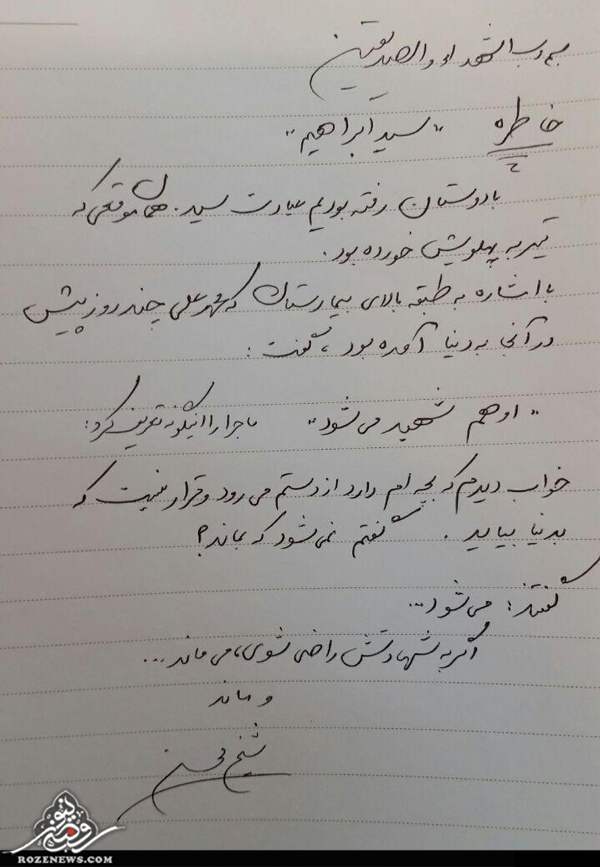 بسم رب الشهداء و الصدیقین
خاطره "سید ابراهیم"
با دوستان رفته بودیم عیادت سید. همان موقعی که
تیر به پهلویش خورده بود.
با اشاره به طبقه بالای بیمارستان که محمد علی چند روز پیش
در آنجا به دنیا آمده بود، گفت:
"او هم شهید می شود" ماجرا را اینگونه تعریف کرد:
خواب دیدم که بچه ام دارد از دستم می رود و قرار نیست که
بدنیا بیاید. گفتم نمی شود که بماند؟
گفتند: می شود...
اگر به شهادتش راضی شوی، می ماند...
و ماند
شیخ محسن
روضه نیوز
ROZENEWS.COM